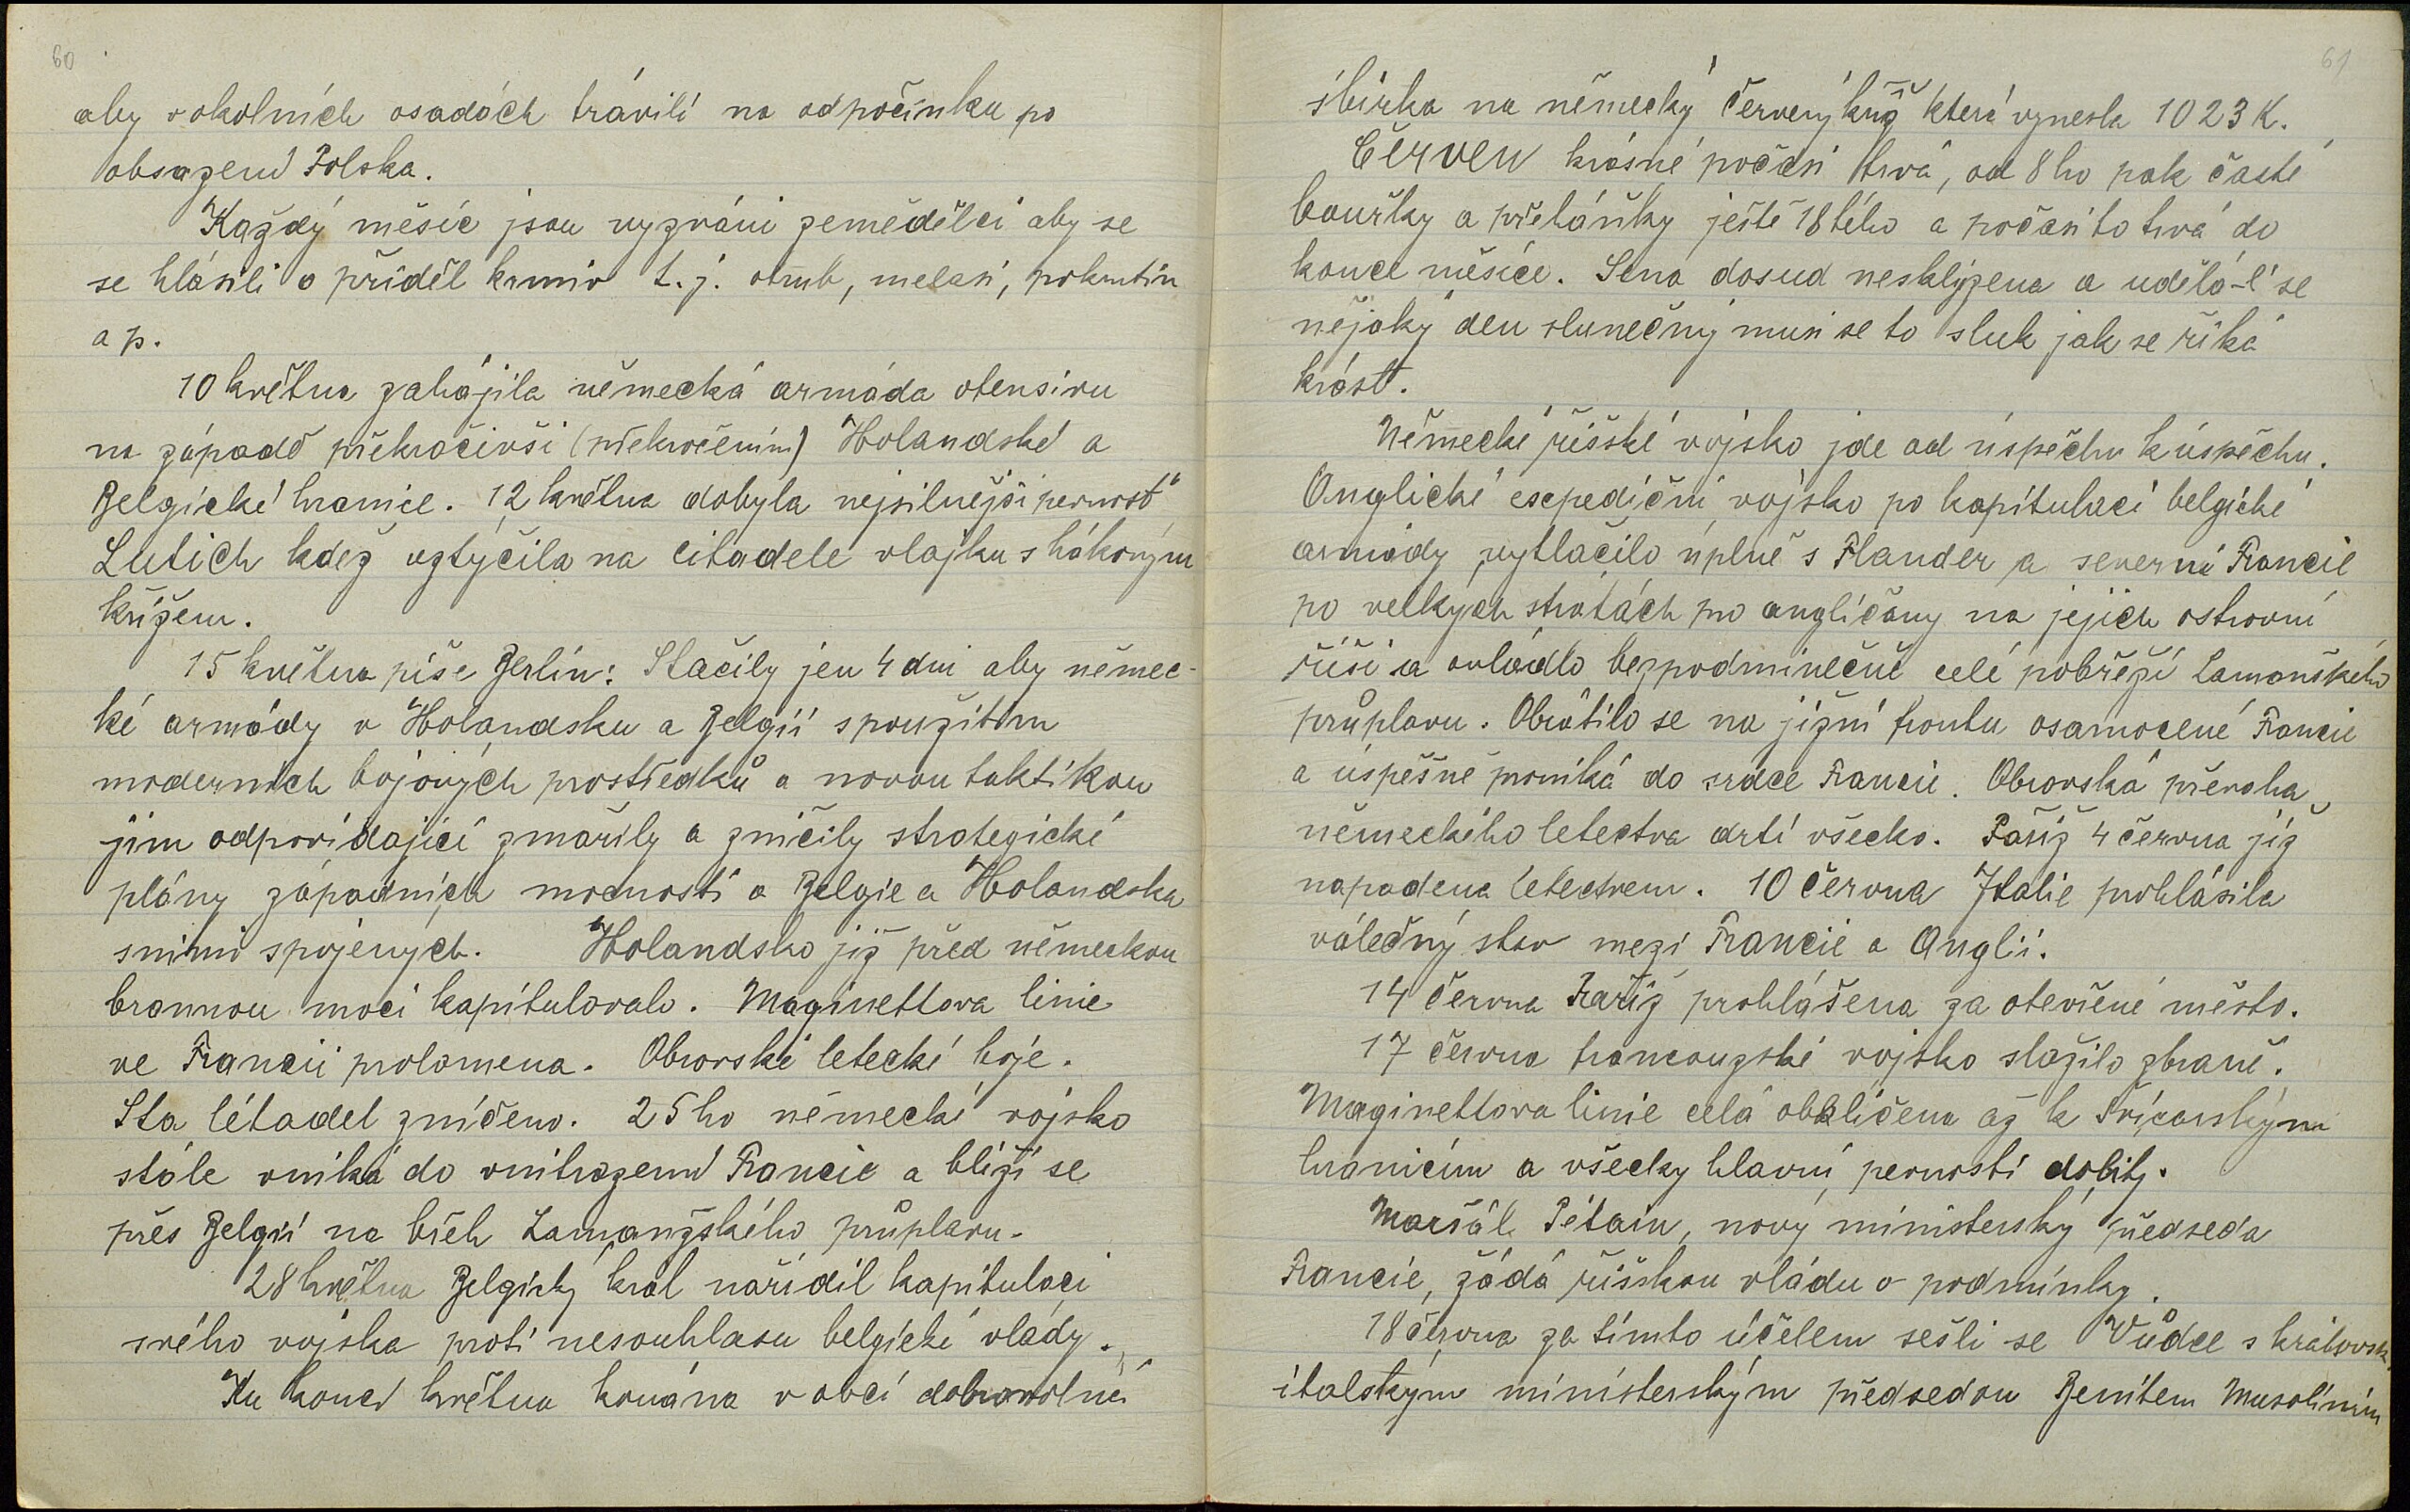 60
aby v okolních osadách trávili na odpočinku po
obsazení Polska.
Každý měsíc jsou vyzváni zemědělci aby se
se hlásili o příděl krmiv t.j. otrub, melasi, pokrutin
a p.
10 května zahájila německá armáda ofensivu
na západě překročivši (překročením) Holandské a
Belgické hranice. 12 května dobyla nejsilnější pevnost
Lutich kdež vztýčila na citadele vlajku s hákovým
křížem.
15 května píše Berlín: Stačily jen 4 dni aby němec-
ké armády v Holandsku a Belgii s použitím
moderních bojových prostředků a novou taktikou
jim odpovídající zmařily a zničily strategické
plány západních mocností a Belgie a Holandska
snimi spojených. Holandsko již před německou
brannou mocí kapitulovalo. Maginettova linie
ve Francii prolomena. Obrovské letecké boje.
Sta létadel zničeno. 25 ho německé vojsko
stále vniká do vnitrozemí Francie a blíží se
přes Belgii na břeh Lamanžského průplavu.
28 května Belgický král nařídil kapitulaci
svého vojska proti nesouhlasu belgické vlády.
Ku konci května konána v obci dobrovolná
61
sbírka na německý červený kříž která vynesla 1023 K.
Červen krásné počasí trvá, od 8 ho pak časté
bouřky a přeháňky ještě 18tého a počasí to trvá do
konce měsíce. Sena dosud nesklizena a udělá-li se
nějaký den slunečný musí se to sluk jak se říká
krást.
Německé říšské vojsko jde od úspěchu k úspěchu.
Anglické expediční vojsko po kapitulaci belgické
armády vytlačilo úplně s Flander a severní Francie
po velkých stratách pro angličany na jejich ostrovní
říši a ovládlo bezpodmínečně celé pobřeží Lamanšského
průplavu. Obrátilo se na jižní frontu osamocené Francie
a úspěšně proniká do srdce Francie. Obrovská převaha
německého letectva drtí všecko. Paříž 4 června již
napadena letectvem. 10 června Itálie prohlásila
válečný stav mezi Francií a Anglií.
14 června Paříž prohlášena za otevřené město.
17 června francouzské vojsko složilo zbraně.
Maginettova linie celá obklíčena až k Švícarským
hranicím a všecky hlavní pevnosti dobity.
Maršál Pétain, nový ministerský předseda
Francie, žádá říšskou vládu o podmínky.
18 června za tímto účelem sešli se Vůdce s královsk.
italským ministerským předsedou Benitem Musolinim